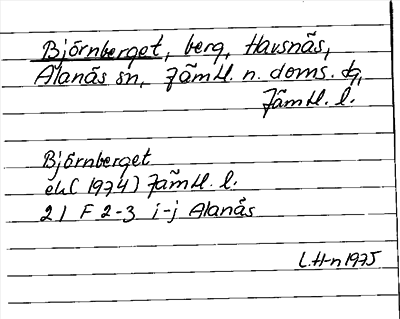 Björnberget, berg, Havsnäs,
Alanäs sn, Jämtl. n. doms. dg,
Jämtl. l.
Björnberget
ek (1974) Jämtl. l.
21 F 2-3 i-j Alanäs
L.H-n 1975